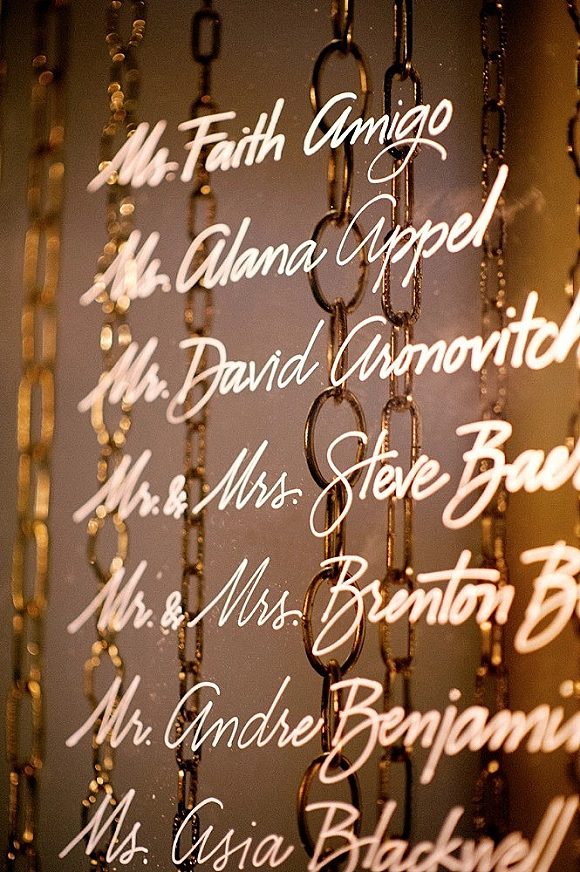 Ms. Faith Amigo
Ms. Alana Appel
Mr. David Aronovitch
Mr. & Mrs. Steve
Mr. & Mrs. Brenton
Mr. Andre Benjamin
Ms. Asia Blackwell